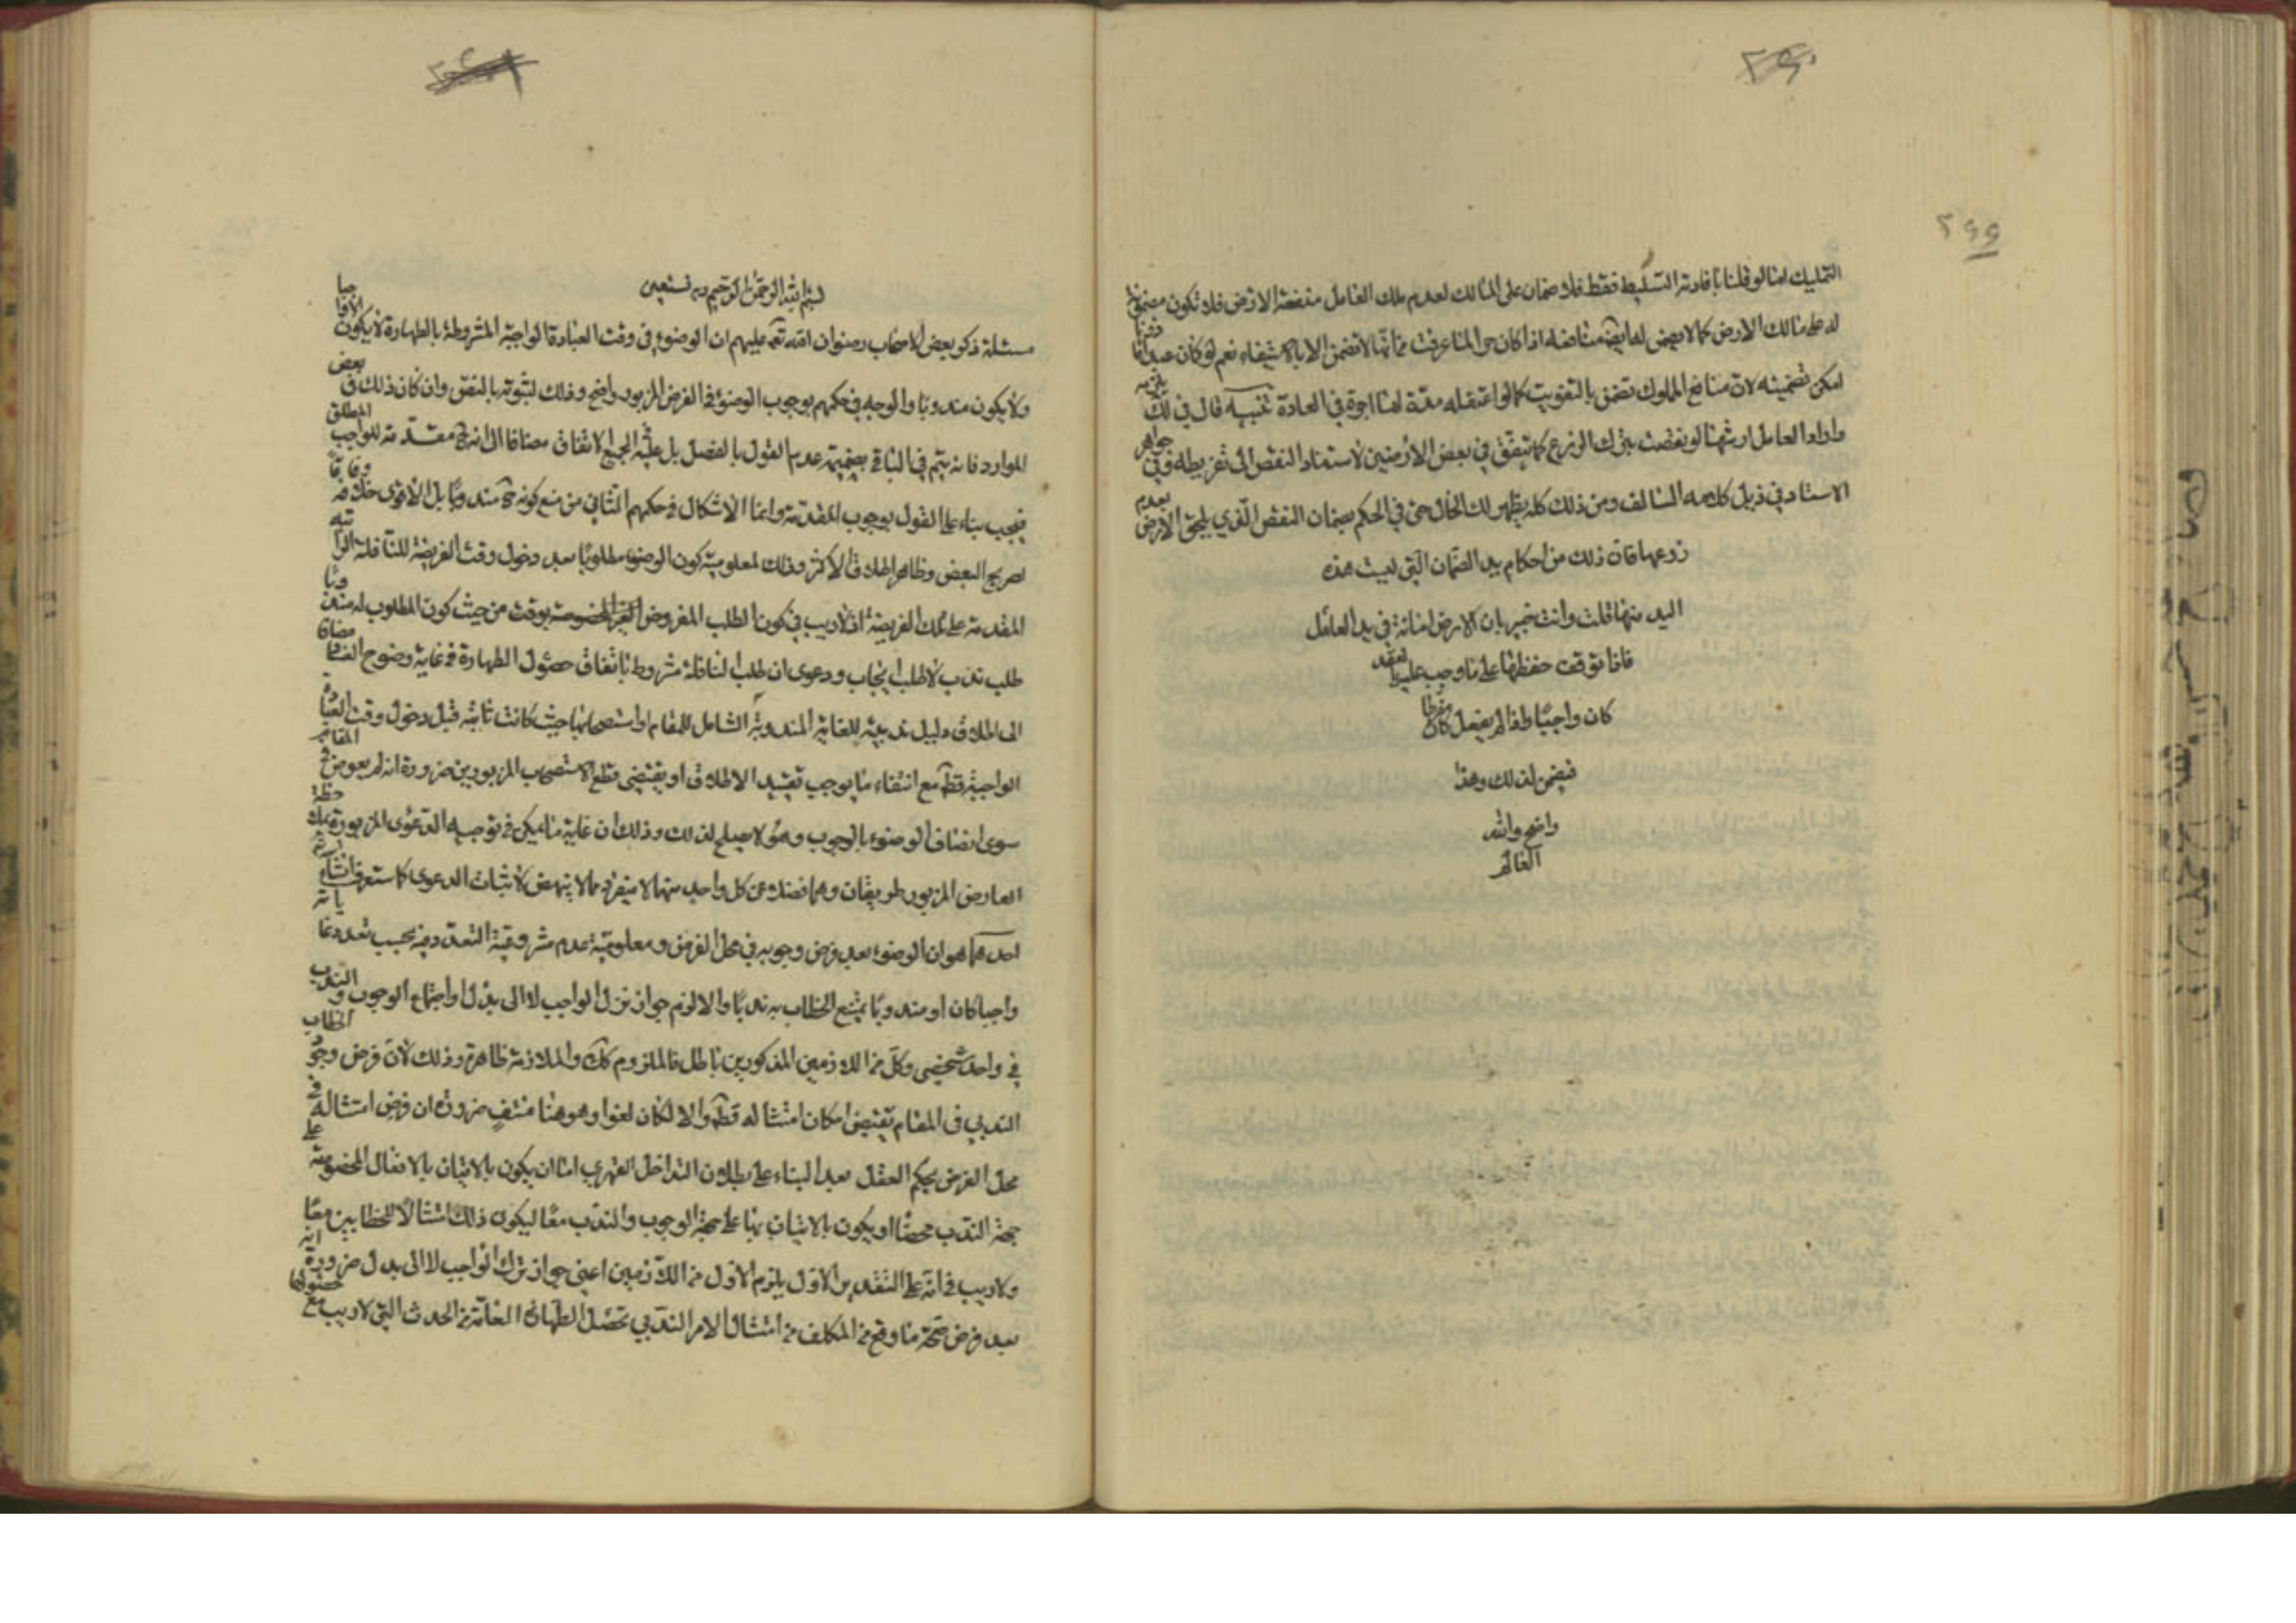 ٢٩٩
التمليك امّا لو قلنا بافادته التسليط فقط فلا ضمان على المالك لعدم ملك العامل منفعة الارض فلا تكون مضمونة
له على مالك الارض كما لا يضمن له ايضا منافعه اذا كان حرا لما عرفت من انها لا تضمن الا بالاستيفاء نعم لو كان عبدا
امكن تضمينه لان منافع المملوك تضمن بالتفويت كما لو اعتقله مدة لها اجرة في العادة تنبيه قال في لك يلزمه
واراد العامل ارشها لو نقصت بترك الزرع كما يتفق في بعض الارضين لاستناد النقص الى تفريطه وفي جواهر
الاستاد في ذيل كلامه السالف ومن ذلك كله يظهر لك الحال حتى في الحكم بضمان النقص الذي يلحق الارض بعدم
زرعها فان ذلك من احكام يد الضمان التي ليست هذه
اليد منها قلت وانت خبير بان الارض امانة في يد العامل
فاذا توقف حفظها على ما وجب عليه بالعقد
كان واجبا واذا لم يفعل كان مفرطا
فيضمن لذلك وهذا
واضح والله
العالم
بسم الله الرحمن الرحيم وبه نستعين
مسئلة ذكر بعض الاصحاب رضوان الله تعالى عليهم ان الوضوء في وقت العبادة الواجبة المشروطة بالطهارة لا يكون الا واجبا
ولا يكون مندوبا والوجه في حكمهم بوجوب الوضوء في الفرض المزبور واضح وذلك لثبوته بالنص وان كان ذلك في بعض
الموارد فانه يتم في الباقي بضميمة عدم القول بالفصل بل عليه الجميع الاتفاق مضافا الى انه ح مقدمة للواجب المطلق
فيجب بناء على القول بوجوب المقدمة وانما الاشكال في حكمهم الثاني من منع كونه ح مندوبا بل الاقوى خلافه وفاقا
لصريح البعض وظاهر اطلاق الاكثر وذلك لمعلومية كون الوضوء مطلوبا بعد دخول وقت الفريضة للنافلة الراتبه
المقدمة على تلك الفريضة اذ لا ريب في كون الطلب المفروض الغير المخصوصة بوقت من حيث كون المطلوب له مندوبا
طلب ندب لا طلب ايجاب ودعوى ان طلب النافلة مشروط باتفاق حصول الطهارة في غاية وضوح الفساد مضافا
الى اطلاق دليل ندبيته للغاية المندوبة الشامل للمقام او استصحابها حيث كانت ثابتة قبل دخول وقت العبادة
الواجبة قطعا مع انتفاء ما يوجب تقييد الاطلاق او يقتضي قطع الاستصحاب المزبورين ضرورة انه لم يعرض في المقام
سوى اتصاف الوضوء بالوجوب وهو لا يصلح لذلك وذلك ان غاية ما يمكن في توجيه الدعوى المزبورة بملاحظة
العارض المزبور طريقان وهما فضلا عن كل واحد منهما لا منفرد مما لا ينهض لاثبات الدعوى كما ستعرف انشاء الله
احدهما هو ان الوضوء بعد فرض وجوبه في محل الفرض ومعلومية عدم مشروعية التعدد فيه بحسب تعدد غاياته
واجبا كان او مندوبا يمتنع الخطاب به ندبا والا لزم جواز ترك الواجب لا الى بدل او اجتماع الوجوب والندب
في واحد شخصي وكل من اللازمين المذكورين باطل فالملزوم كك والملازمة ظاهرة وذلك لان فرض وجود الخطاب
الندبي في المقام يقتضي امكان امتثاله قطعا والا لكان لغوا وهو هنا منتف ضرورة ان فرض امتثاله في
محل الفرض بحكم العقل بعد البناء على بطلان التداخل القهري اما ان يكون بالاتيان بالافعال المخصوصة على
جهة الندب محضا او يكون بالاتيان بها على جهة الوجوب والندب معا ليكون ذلك امتثالا للخطابين معا
ولا ريب في انه على التقدير الاول يلزم الاول من اللازمين اعني جواز ترك الواجب لا الى بدل ضرورة انه
بعد فرض صحة ما وقع من المكلف من امتثال الامر الندبي تحصل الطهارة العامة من الحدث التي لا ريب مع حصولها